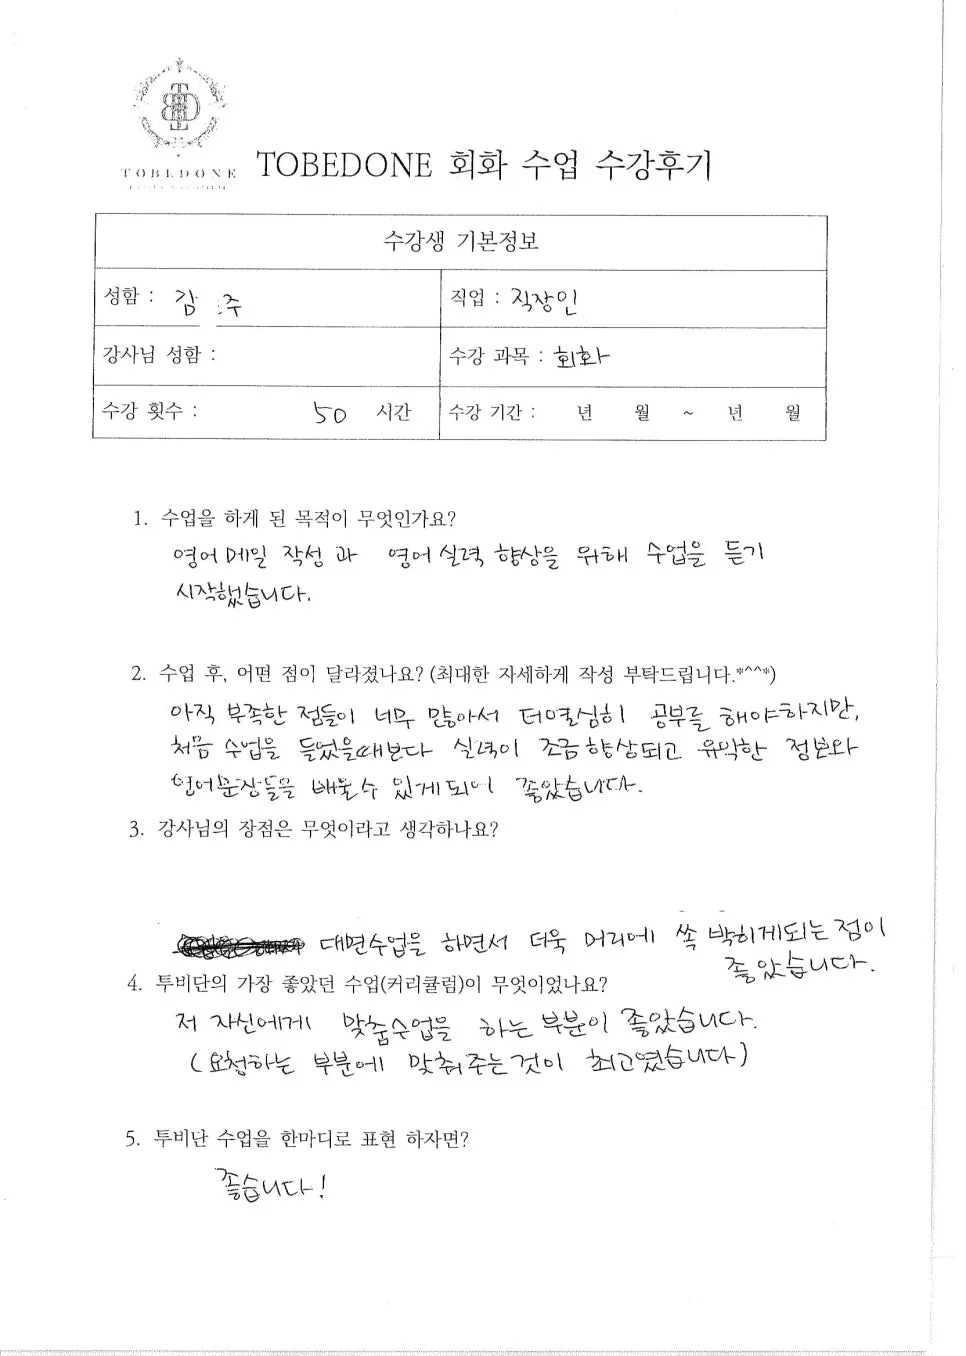 TOBEDONE
TOBEDONE 회화 수업 수강후기
수강생 기본정보
성함 : 김 주
직업 : 직장인
강사님 성함 :
수강 과목 : 회화
수강 횟수 : 50 시간
수강 기간 : 년 월 ~ 년 월
1. 수업을 하게 된 목적이 무엇인가요?
영어메일 작성과 영어실력 향상을 위해 수업을 듣기
시작했습니다.
2. 수업 후, 어떤 점이 달라졌나요?(최대한 자세하게 작성 부탁드립니다.*^^*)
아직 부족한 점들이 너무 많아서 더열심히 공부를 해야하지만,
처음 수업을 들었을때보다 실력이 조금향상되고 유익한 정보와
영어문장들을 배울수 있게되어 좋았습니다.
3. 강사님의 장점은 무엇이라고 생각하나요?
대면수업을 하면서 더욱 머리에 쏙 박히게되는점이
좋았습니다.
4. 투비단의 가장 좋았던 수업(커리큘럼)이 무엇이었나요?
저 자신에게 맞춤수업을 하는부분이 좋았습니다.
(요청하는 부분에 맞춰주는것이 최고였습니다)
5. 투비단 수업을 한마디로 표현 하자면?
좋습니다!